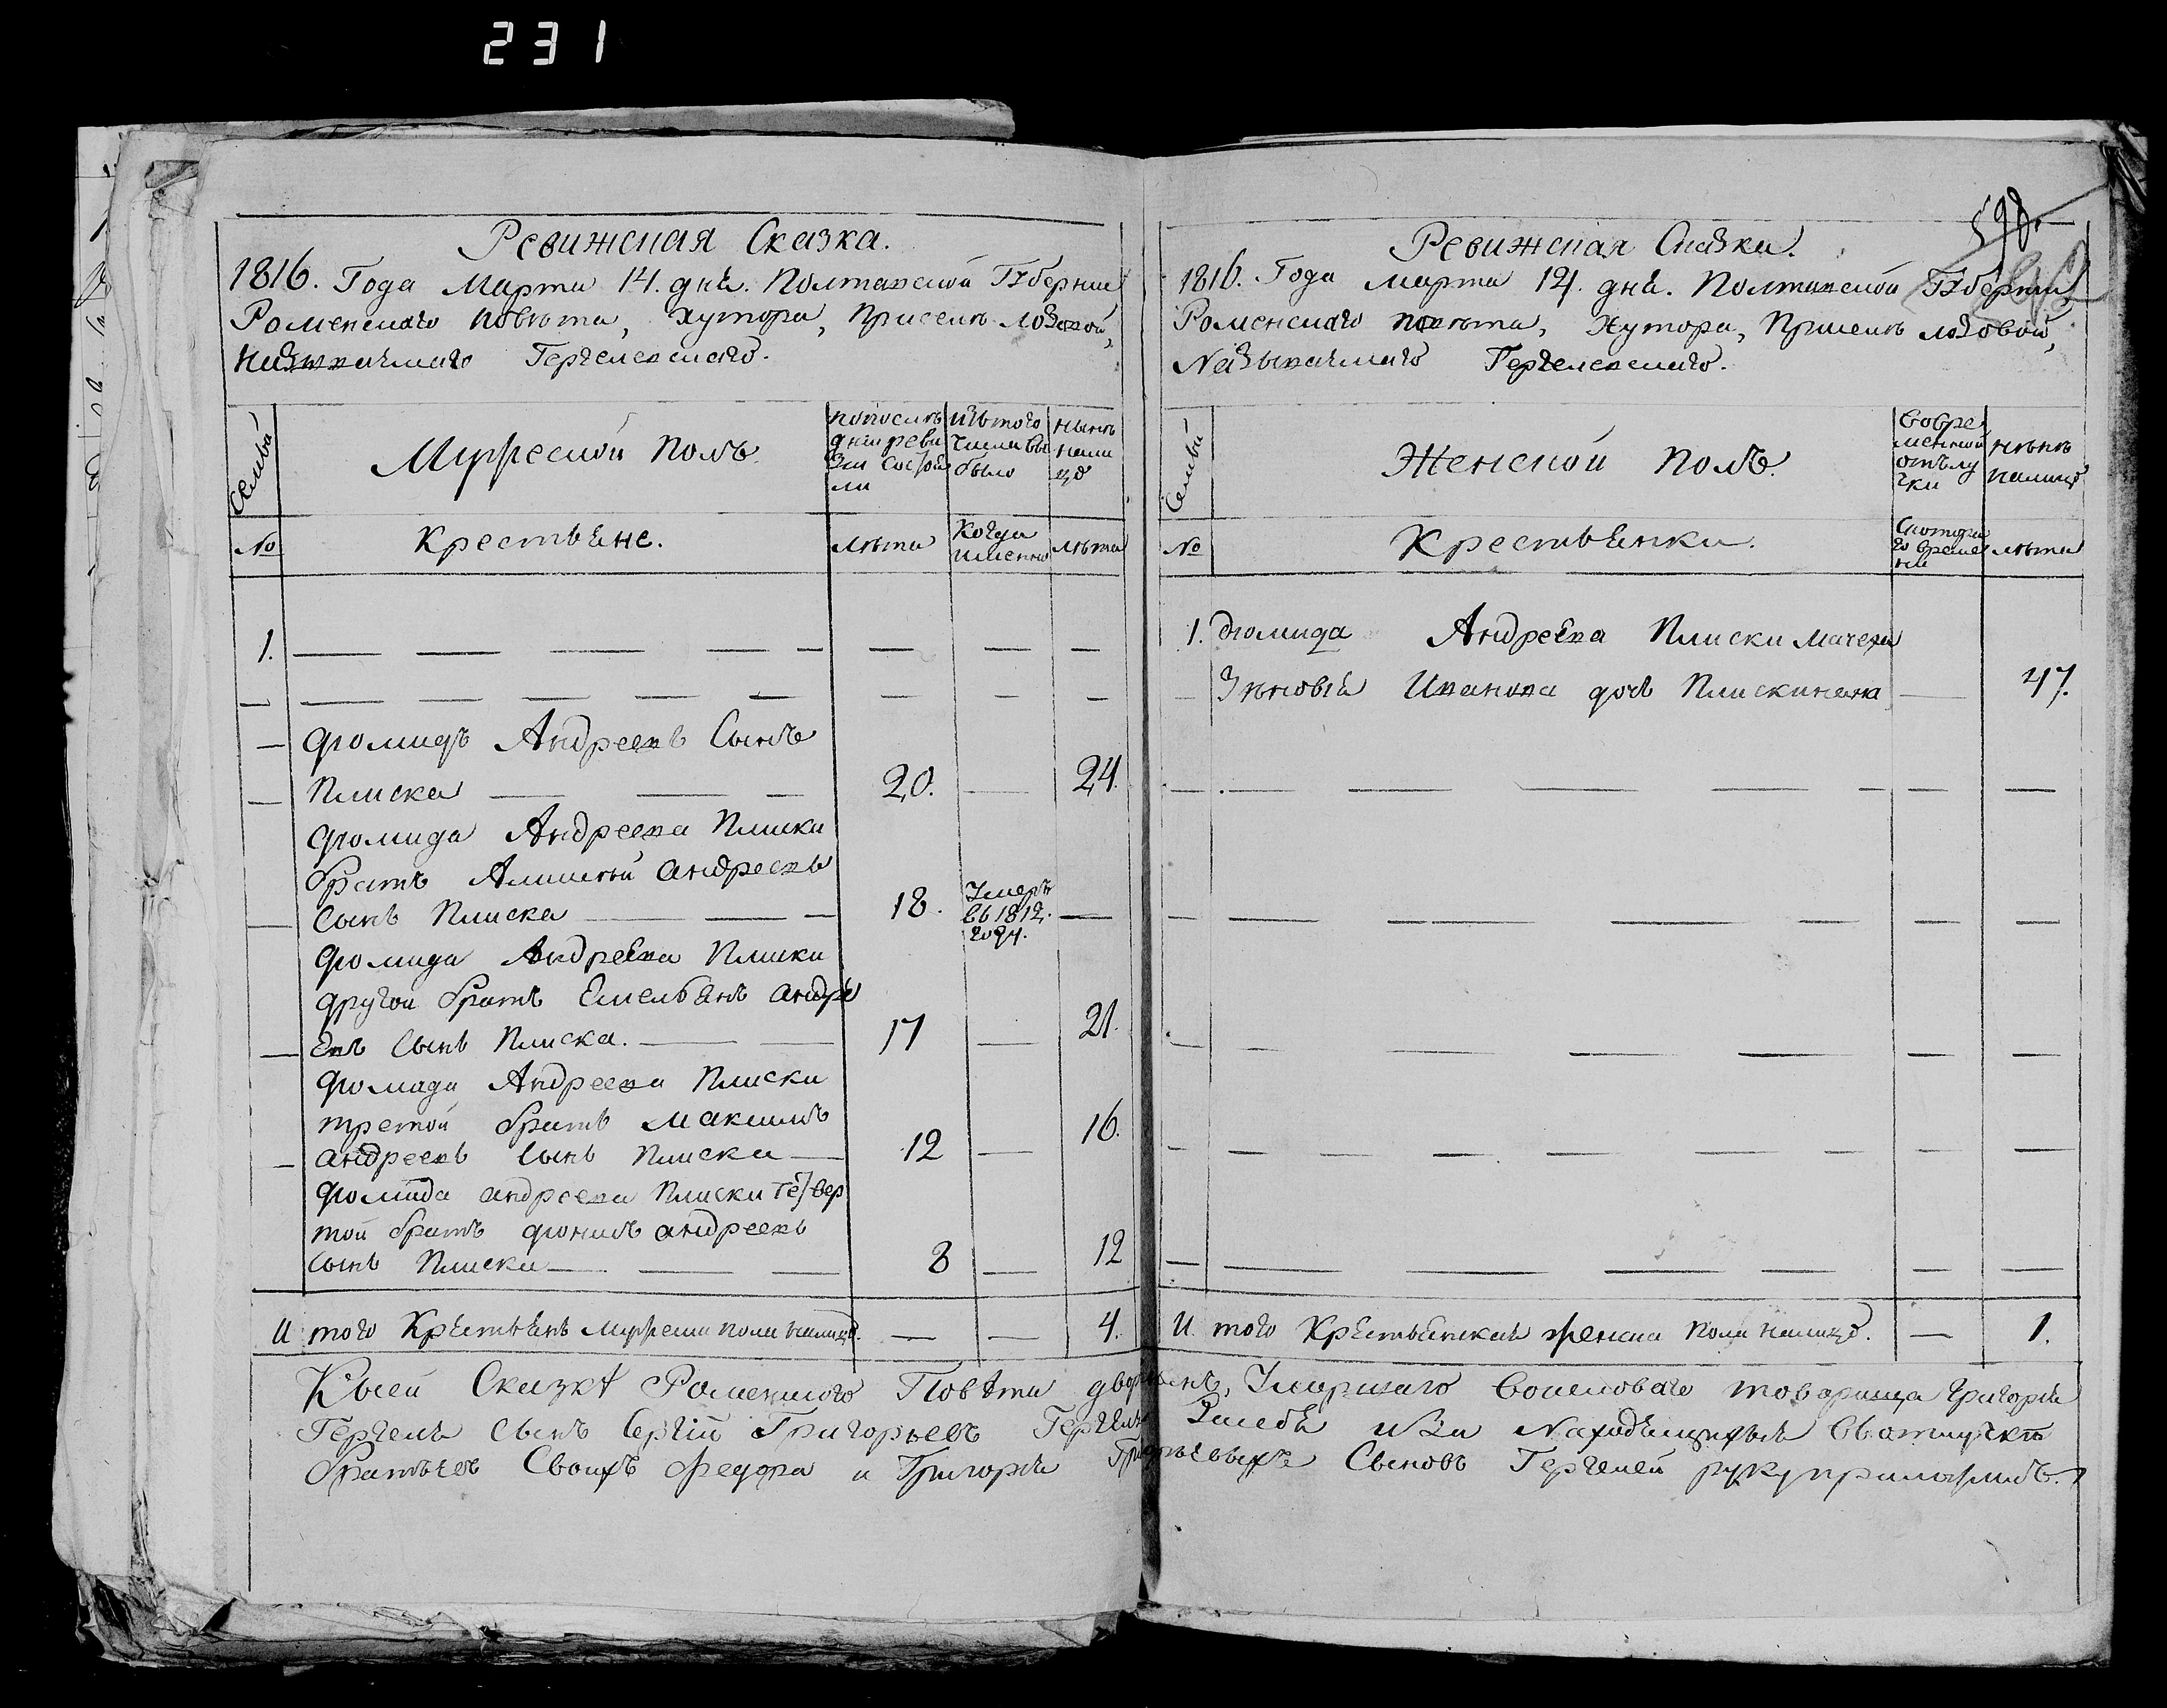 231
598.
Ревижская Сказка.
1816. Года Марта 14. дня. Полтавской Губернии
Роменского повѣта, Хутора, Приселк Лозовой,
называемаго Гергелевского.
Семьи
Мужеской Полъ.
по последней ревизии состояли
изъ того числа выбыло
нынѣ налицо
№
Крестьяне.
лѣта
Когда именно
лѣта
1.
Дiомидъ Андреевъ Сынъ
Плиска 20. 24.
Дiомида Андреева Плиски
братъ Алимпiй Андреевъ
Сынъ Плиска 18. Умеръ
въ 1812.
году.
Дiомида Андреева Плиски
другой братъ Емельянъ Андре
евъ Сынъ Плиска. 17 21.
Дiомида Андреева Плиски
третой братъ Максимъ
Андреевъ Сынъ Плиска 12 16.
Дiомида Андреева Плиски чет вер
той братъ Андреевъ
Сынъ Плиска 8 12
И того Крестьянъ мужеска пола налицо. 4.
Ревижская Сказка.
1816. Года Марта 14. дня. Полтавской Губернии
Роменского повѣта, Хутора, Приселк Лозовой,
Называемаго Гергелевского.
Семьи
Женской полъ.
Во временной отлучки
нынѣ налицо
№
Крестьянки.
С котораго времени
лѣта
1. Дiомида Андреева Плиски мачеха
Зѣновiя Иванова дочь Плискинана 47.
И того Крестьянская женска пола налицо. 1.
К сей Сказкѣ Роменского Повѣта дворянинъ, Умершаго Войсковаго товарища Григорiя
Гергеля Сынъ Сергiй Григорьевъ Гергель За себя и За Находящихъся въ отлучкѣ
братьевъ Своихъ Федора и Григорiя Григорьевыхъ Сыновъ Гергелей руку приложилъ.